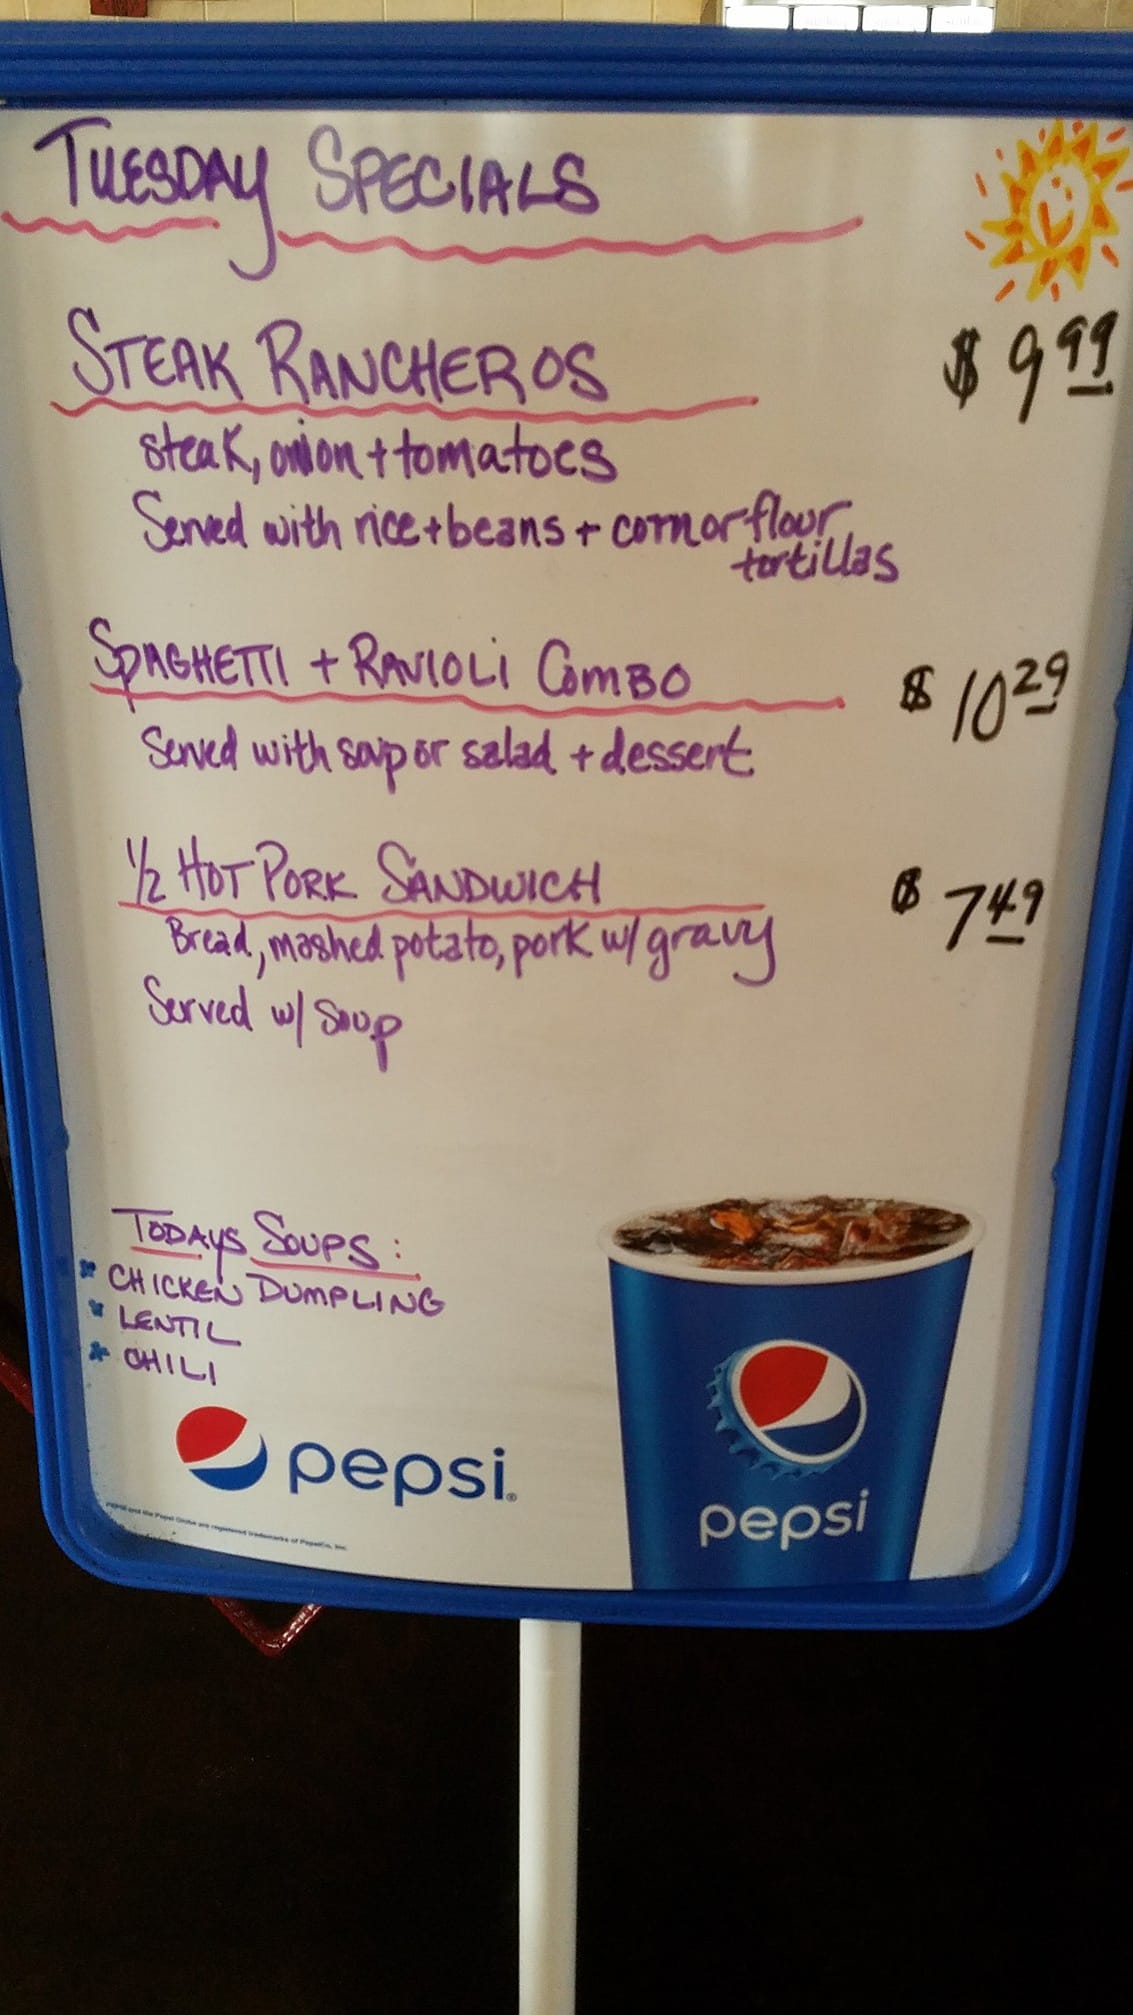 TUESDAY SPECIALS
STEAK RANCHEROS $9.99
steak, onion + tomatoes
Served with rice + beans + corn or flour
tortillas
SPAGHETTI + RAVIOLI COMBO $10.29
Served with soup or salad + dessert
1/2 HOT PORK SANDWICH $7.49
Bread, mashed potato, pork w/ gravy
Served w/ Soup
TODAYS SOUPS:
* CHICKEN DUMPLING
* LENTIL
* CHILI
pepsi®
pepsi
PEPSI and the Pepsi Globe are registered trademarks of PepsiCo, Inc.